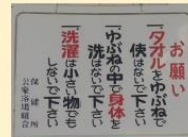 お願い
一、タオルをゆぶねで
使はないで下さい
一、ゆぶねの中で身体を
洗はないで下さい
一、洗濯は小さい物でも
しないで下さい
保健所
公衆浴場組合